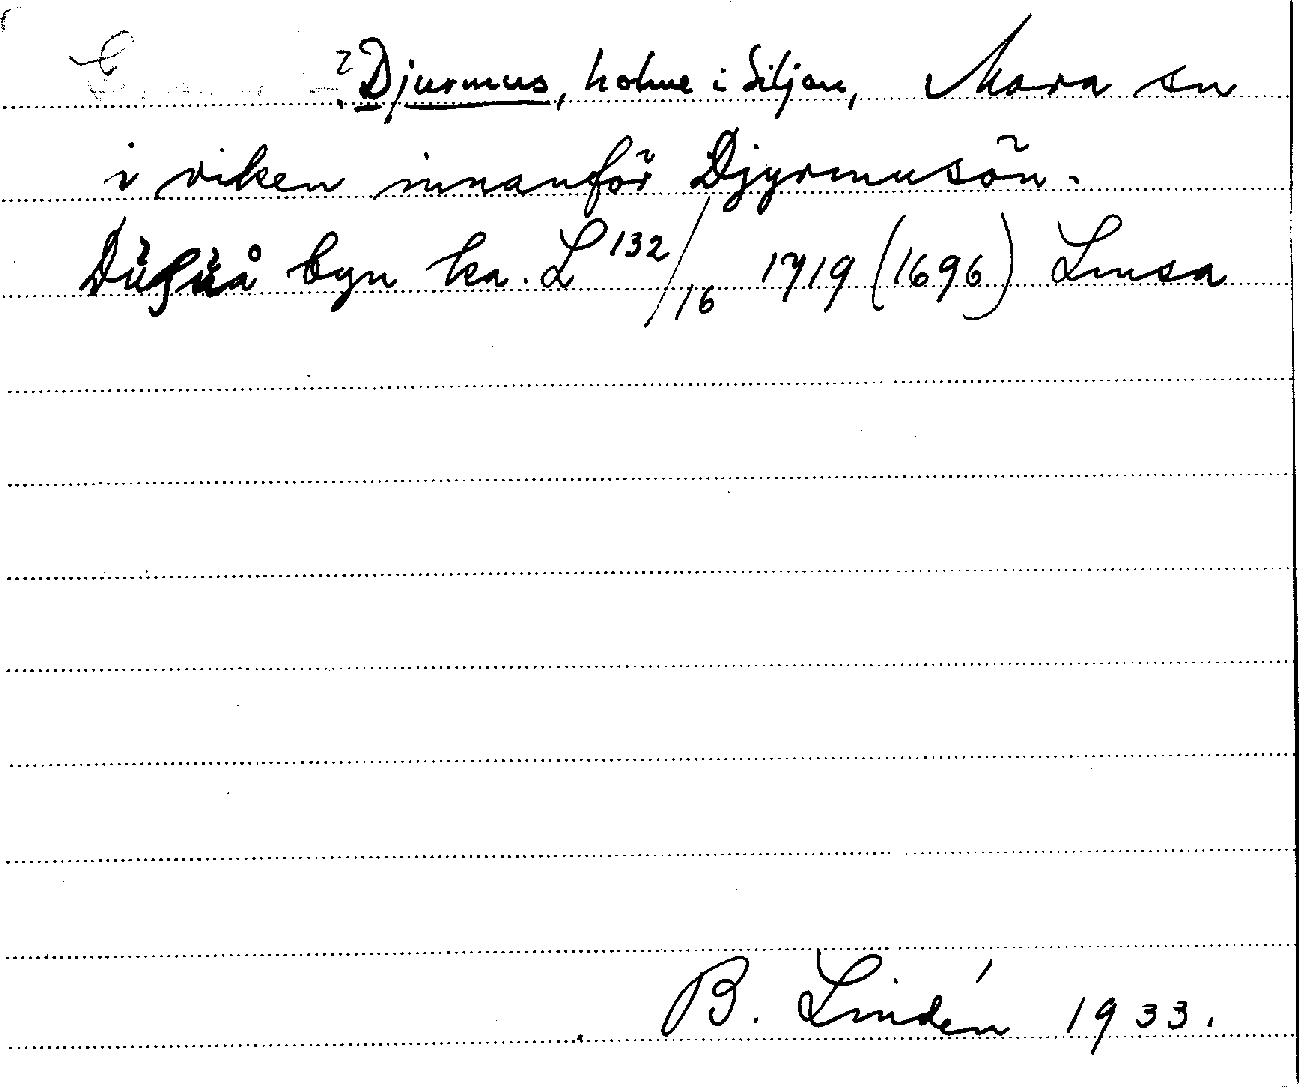 ? Djurmus, holme i Siljan, Mora sn
i viken innanför Djyrmusön.
byn ka. L 132/16 1719 (1696)
B. Lindén 1933.